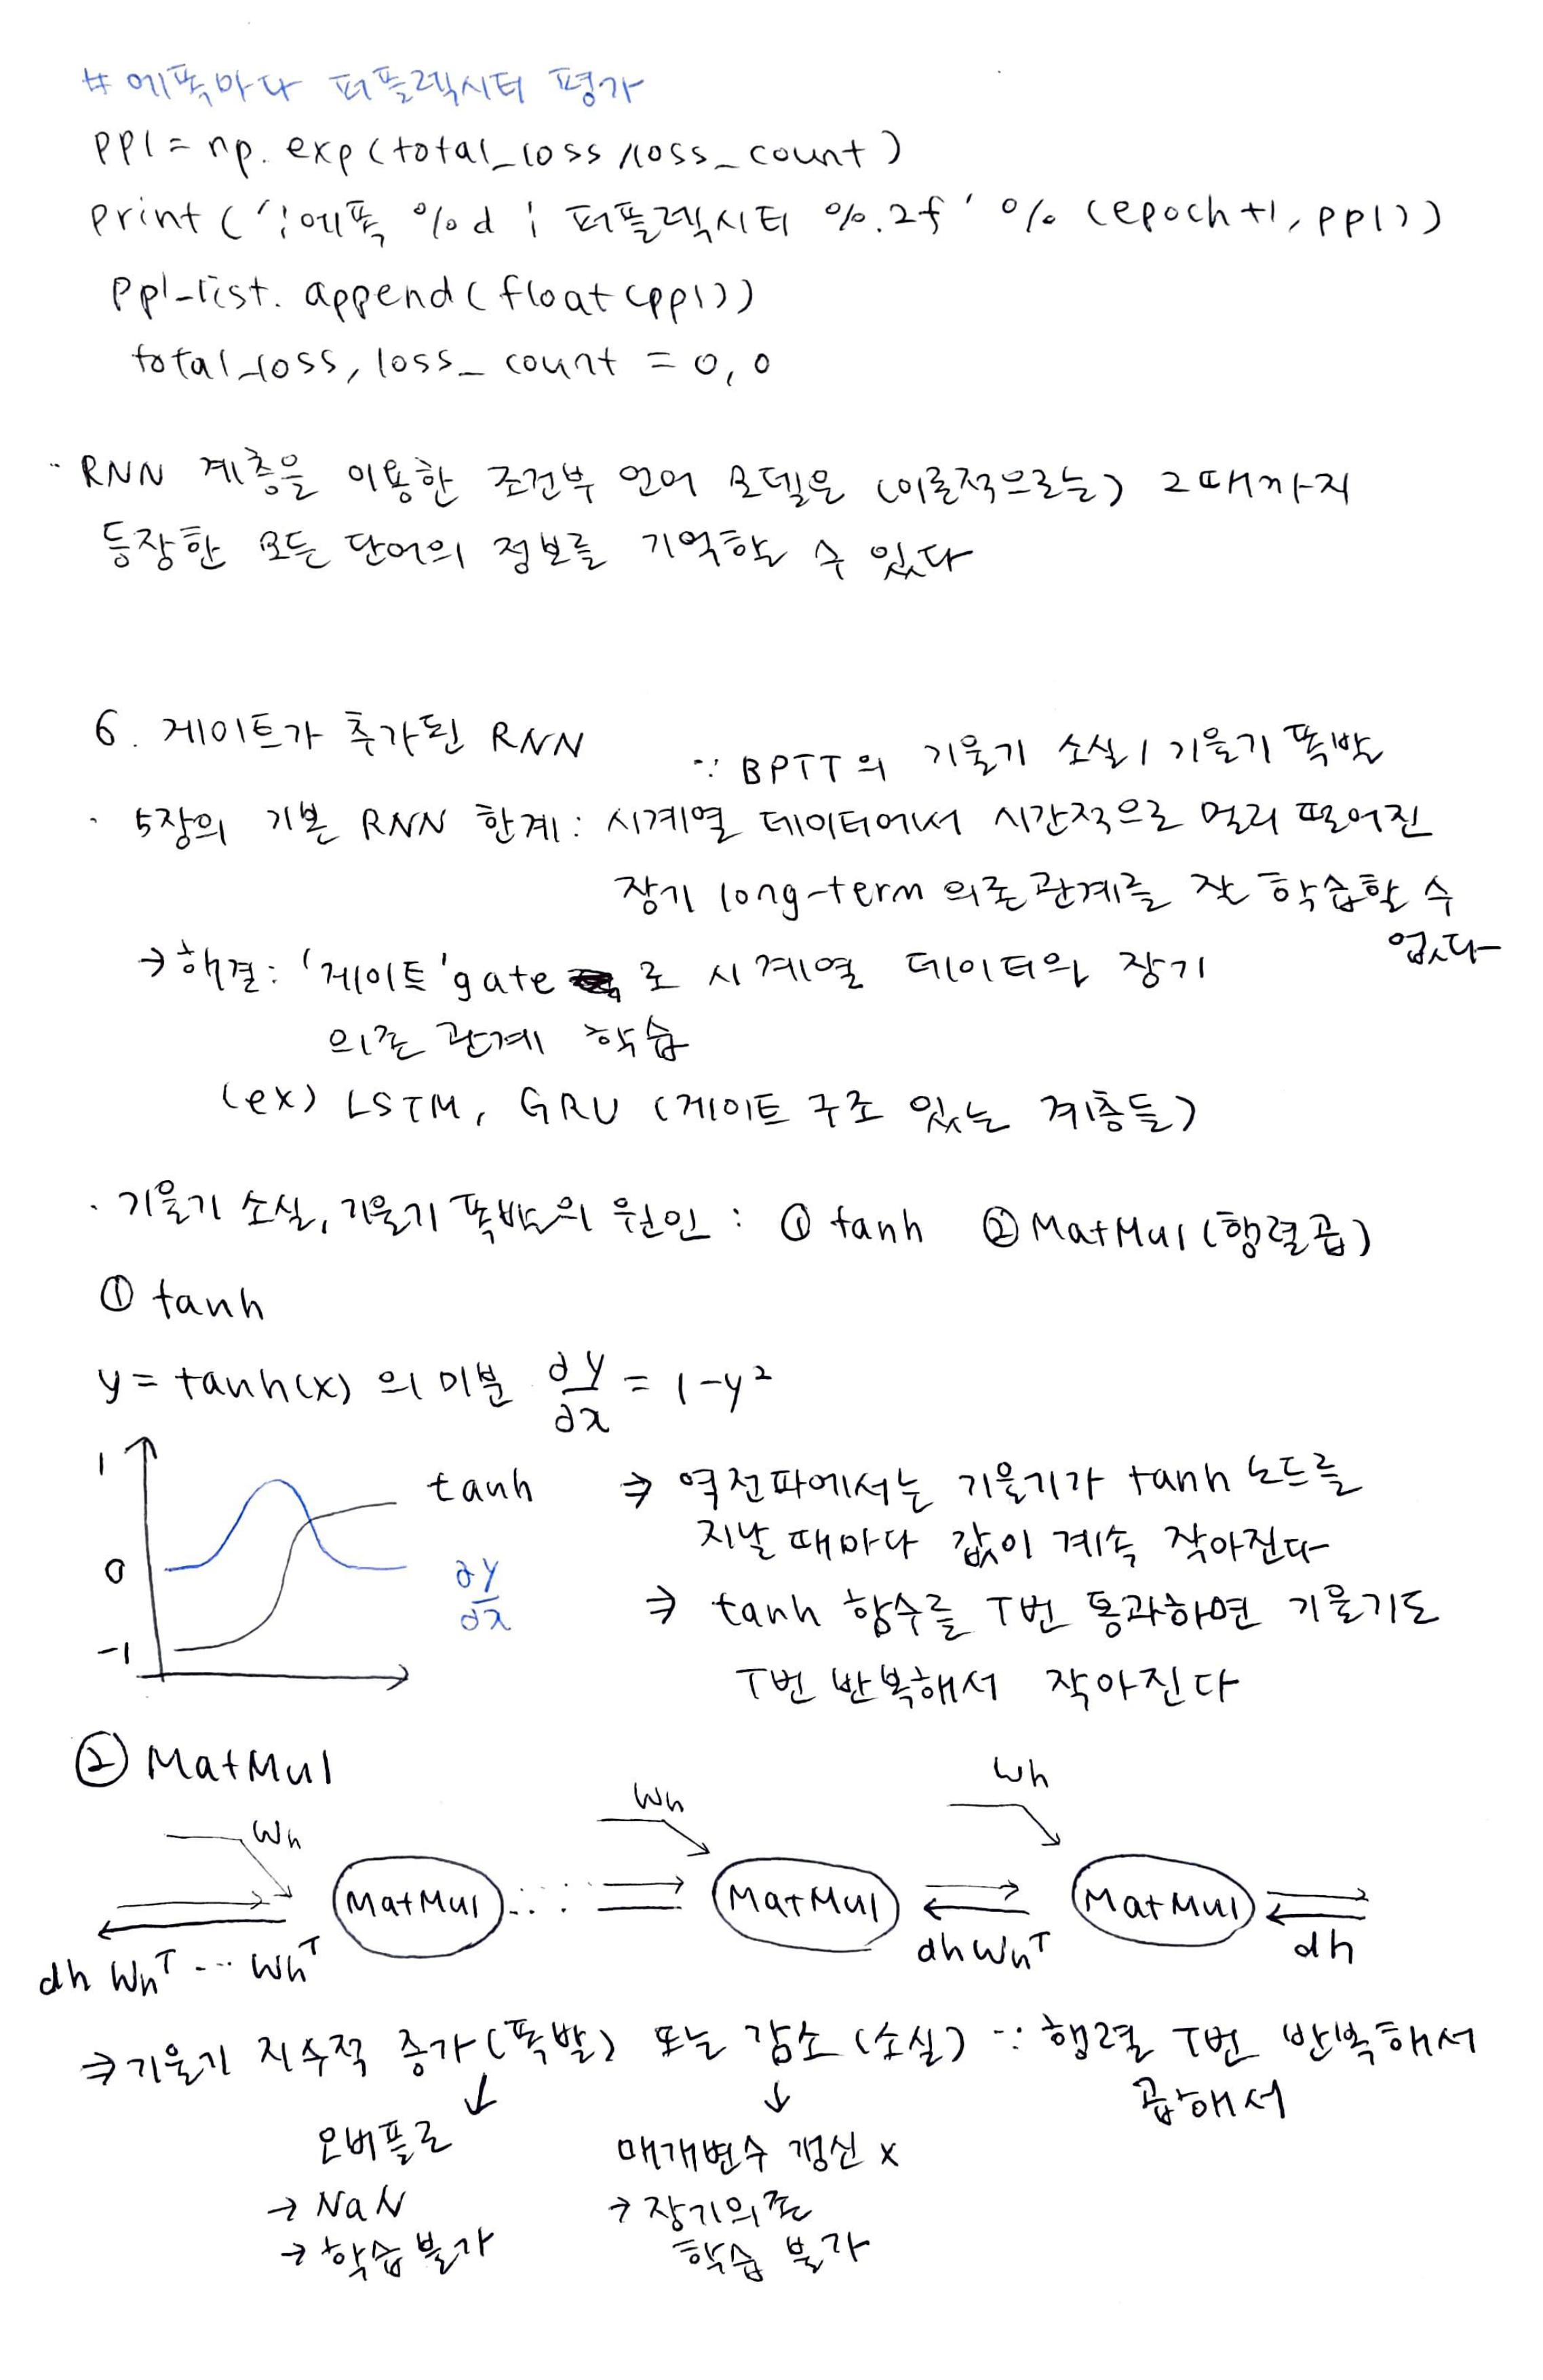 # 에폭마다 퍼플렉시티 평가
ppl = np.exp(total_loss / loss_count)
print('¦에폭 %d ¦ 퍼플렉시티 %.2f' % (epoch+1, ppl))
ppl_list.append(float(ppl))
total_loss, loss_count = 0, 0
·· RNN 계층을 이용한 조건부 언어 모델은 (이론적으로는) 그때까지
등장한 모든 단어의 정보를 기억할 수 있다
6. 게이트가 추가된 RNN
∵ BPTT의 기울기 소실/기울기 폭발
· 5장의 기본 RNN 한계: 시계열 데이터에서 시간적으로 멀리 떨어진
장기 long-term 의존관계를 잘 학습할 수
없다
→ 해결: '게이트' gate 로 시계열 데이터의 장기
의존 관계 학습
(ex) LSTM, GRU (게이트 구조 있는 계층들)
· 기울기 소실, 기울기 폭발의 원인: ① tanh ② MatMul (행렬곱)
① tanh
y = tanh(x) 의 미분 ∂y/∂x = 1-y²
1
0
-1
tanh
∂y/∂x
⇒ 역전파에서는 기울기가 tanh 노드를
지날 때마다 값이 계속 작아진다
⇒ tanh 함수를 T번 통과하면 기울기도
T번 반복해서 작아진다
② MatMul
Wh Wh Wh
MatMul ··· MatMul MatMul
dh Whᵀ ··· Whᵀ dh Whᵀ dh
⇒ 기울기 지수적 증가(폭발) 또는 감소(소실) ∵ 행렬 T번 반복해서
곱해서
↓ ↓
오버플로 매개변수 갱신 x
→ NaN → 장기의존
→ 학습 불가 학습 불가